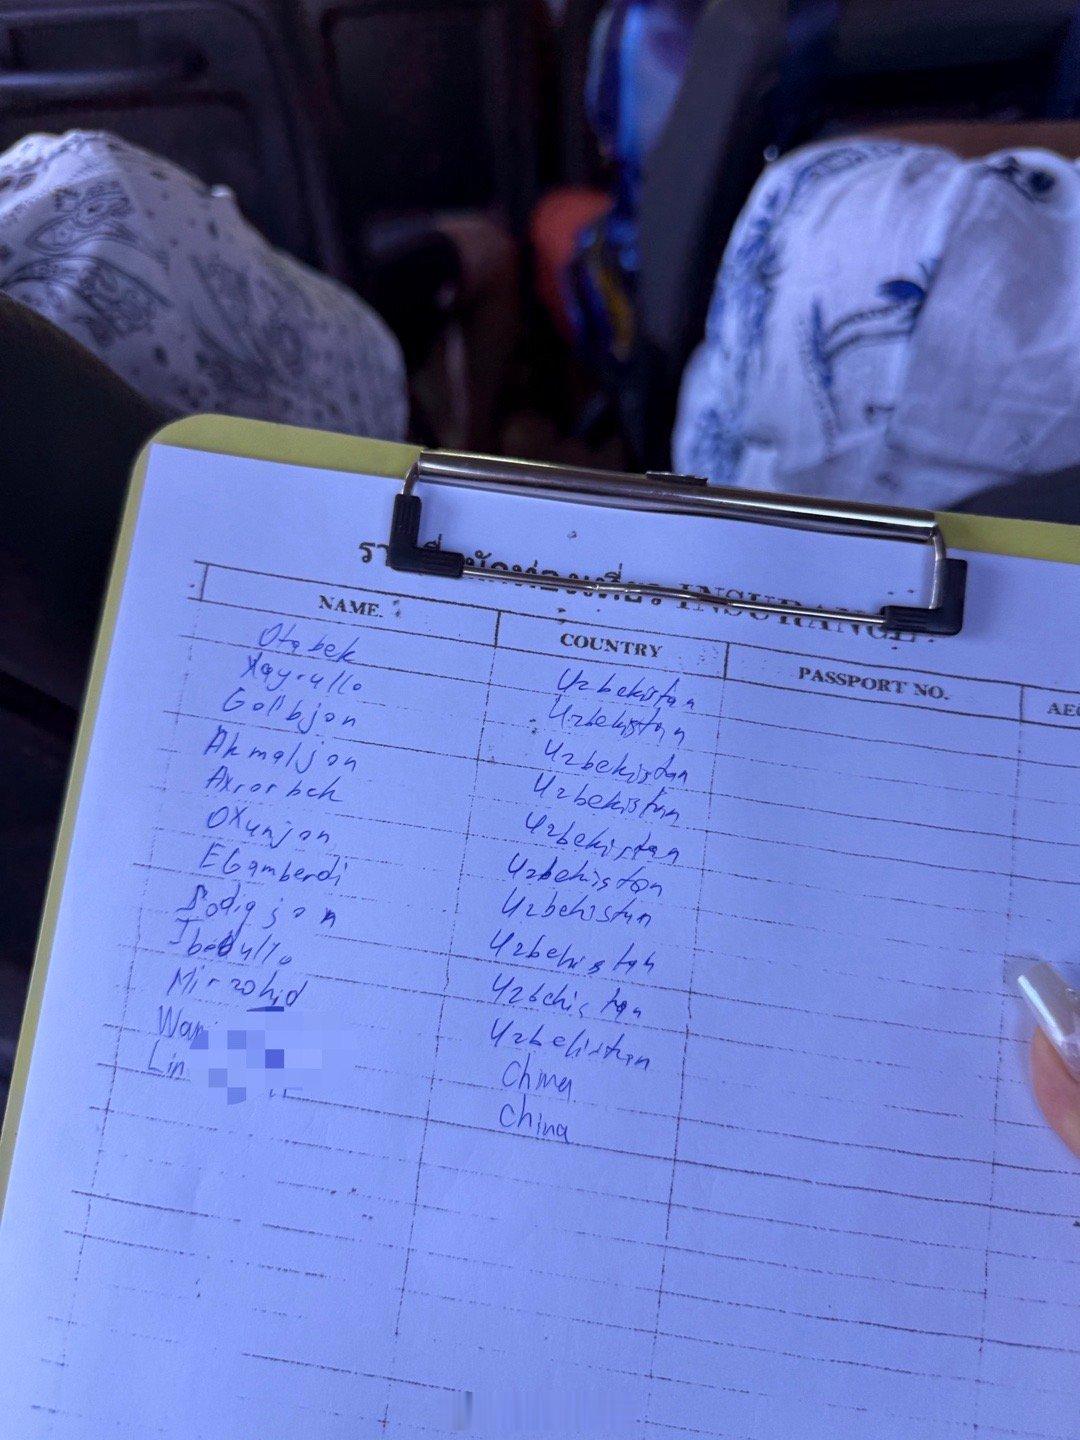 INSURANCE
NAME. COUNTRY PASSPORT NO.
Otabek Uzbekistan
Xayrullo Uzbekistan
Golibjon Uzbekistan
Akmaljon Uzbekistan
Axrorbek Uzbekistan
Oxunjon Uzbekistan
Egamberdi Uzbekistan
Sodiqjon Uzbekistan
Ibodullo Uzbekistan
Mirzohid Uzbekistan
Wan China
Lin China